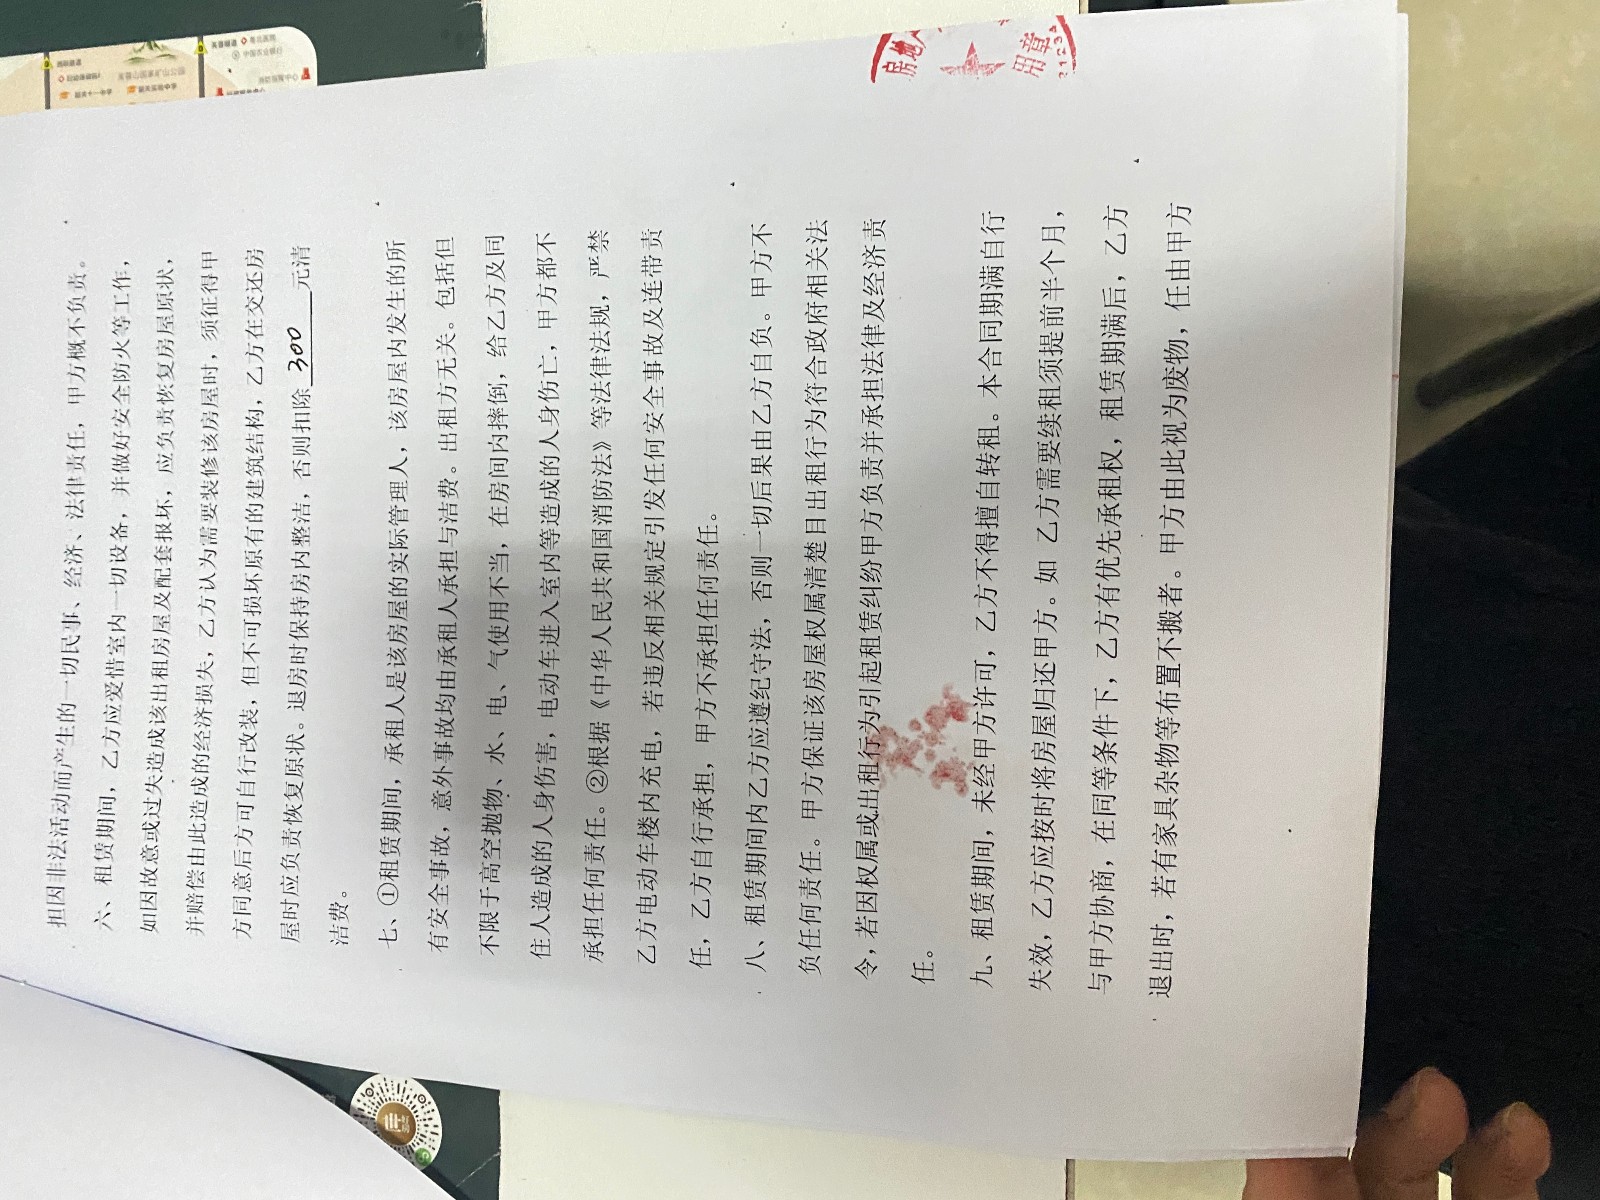 担因非法活动而产生的一切民事、经济、法律责任，甲方概不负责。
六、租赁期间，乙方应爱惜室内一切设备，并做好安全防火等工作，
如因故意或过失造成该出租房屋及配套报坏，应负责恢复房屋原状，
并赔偿由此造成的经济损失，乙方认为需要装修该房屋时，须征得甲
方同意后方可自行改装，但不可损坏原有的建筑结构，乙方在交还房
屋时应负责恢复原状。退房时保持房内整洁，否则扣除 300 元清
洁费。
七、①租赁期间，承租人是该房屋的实际管理人，该房屋内发生的所
有安全事故，意外事故均由承租人承担与洁费。出租方无关。包括但
不限于高空抛物、水、电、气使用不当，在房间内摔倒，给乙方及同
住人造成的人身伤害，电动车进入室内等造成的人身伤亡，甲方都不
承担任何责任。②根据《中华人民共和国消防法》等法律法规，严禁
乙方电动车楼内充电，若违反相关规定引发任何安全事故及连带责
任，乙方自行承担，甲方不承担任何责任。
八、租赁期间内乙方应遵纪守法，否则一切后果由乙方自负。甲方不
负任何责任。甲方保证该房屋权属清楚且出租行为符合政府相关法
令，若因权属或出租行为引起租赁纠纷甲方负责并承担法律及经济责
任。
九、租赁期间，未经甲方许可，乙方不得擅自转租。本合同期满自行
失效，乙方应按时将房屋归还甲方。如 乙方需要续租须提前半个月，
与甲方协商，在同等条件下，乙方有优先承租权，租赁期满后，乙方
退出时，若有家具杂物等布置不搬者。甲方由此视为废物，任由甲方
房地
用章
21234